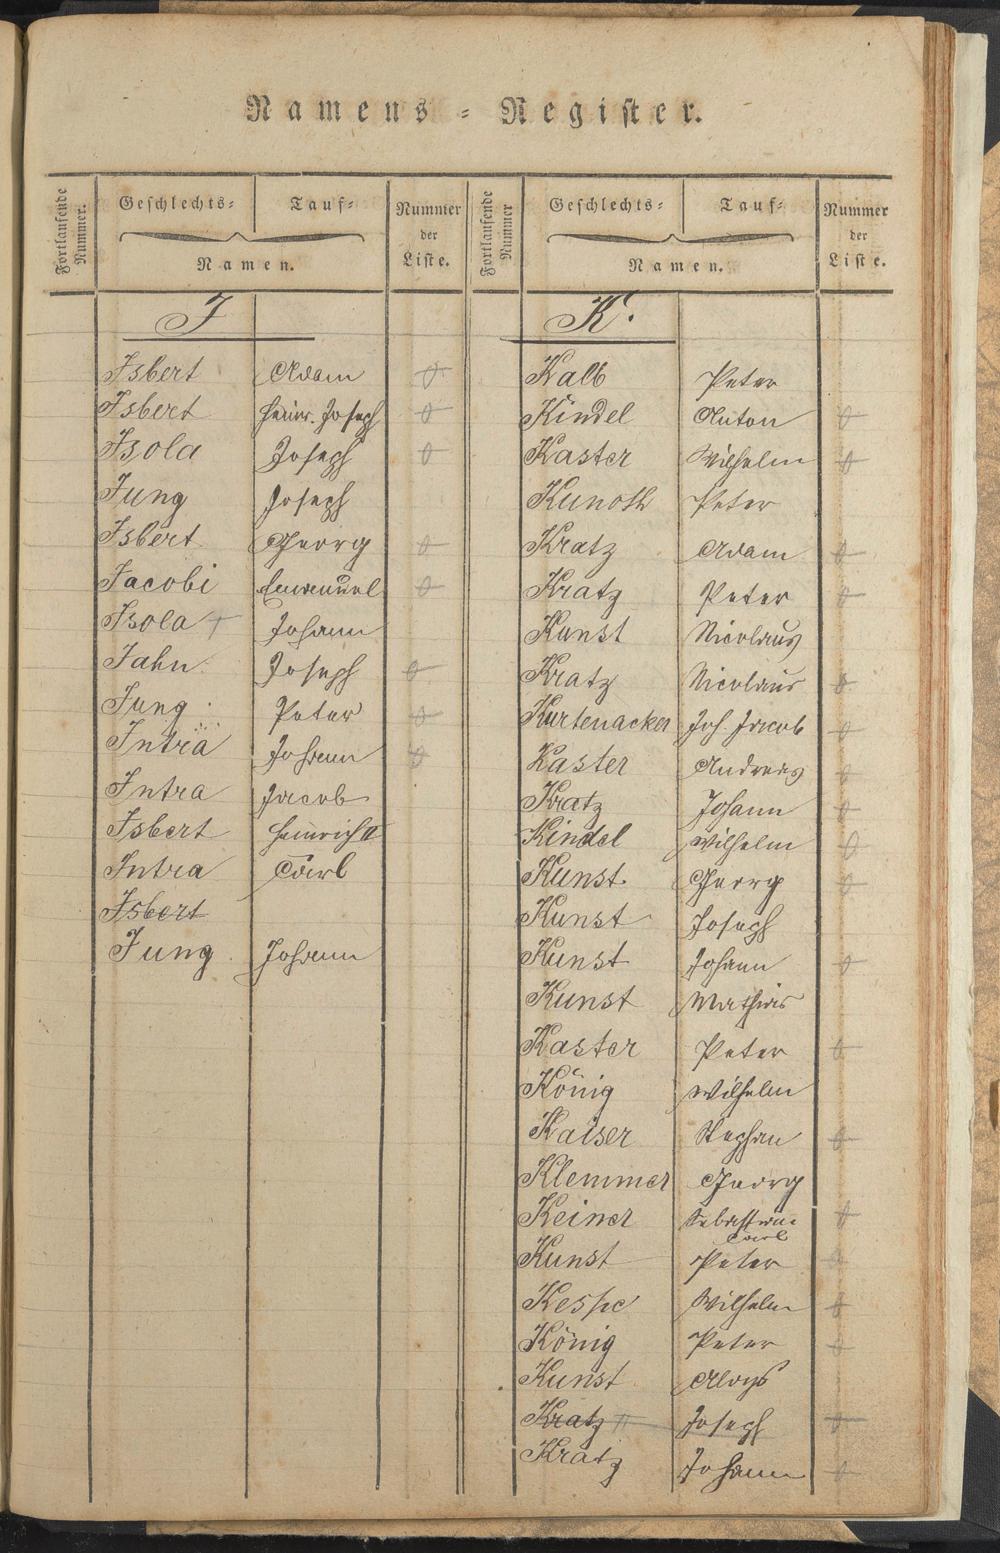 Namens-Register.
Fortlaufende Nummer.
Geschlechts- Tauf-
Namen.
Nummer der Liste.
J
Isbert Adam
Isbert Heinr. Joseph
Isola Joseph
Jung Joseph
Isbert Georg
Jacobi Emanuel
Isola † Johann
Jahn Joseph
Jung Peter
Intra Johann
Intra Jacob
Isbert Heinrich II
Intra Carl
Isbert
Jung Johann
Fortlaufende Nummer
Geschlechts- Tauf-
Namen.
Nummer der Liste.
K.
Kalb Peter
Kindel Anton
Kaster Wilhelm
Kunoth Peter
Kratz Adam
Kratz Peter
Kunst Nicolaus
Kratz Nicolaus
Kurtenacker Joh. Jacob
Kaster Andreas
Kratz Johann
Kindel Wilhelm
Kunst Georg
Kunst Joseph
Kunst Johann
Kunst Mathias
Kaster Peter
König Wilhelm
Kaiser Stephan
Klemmer Georg
Keiner Sebastian
Carl
Kunst Peter
Kespe Wilhelm
König Peter
Kunst Aloys
Kratz II Joseph
Kratz Johann